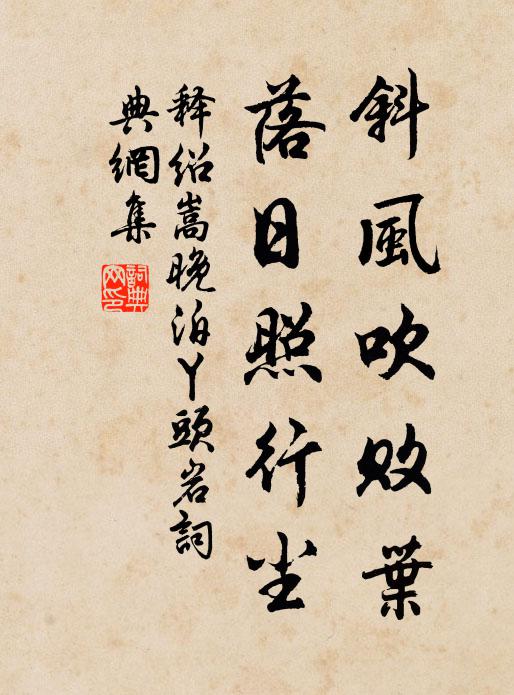 斜風吹敗葉
落日照行尘
释紹嵩晚泊丫頭岩詞
典網集
詞典
网印